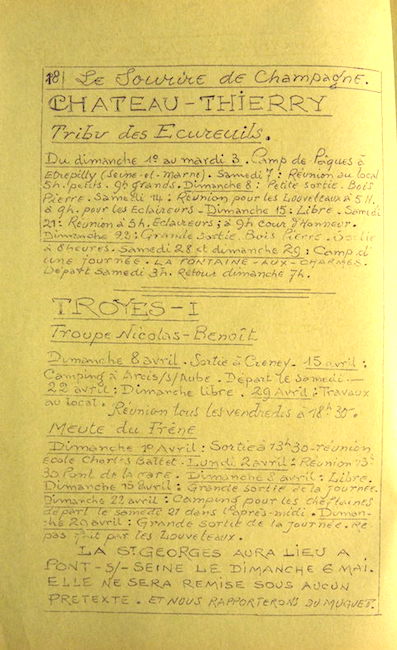 18) Le Sourire de Champagne.
CHATEAU-THIERRY
Tribu des Ecureuils.
Du dimanche 1º au mardi 3. Camp de Pâques à
Etrepilly (Seine-et-Marne). Samedi 7: Réunion au local
5h. petits. 9h grands. Dimanche 8: Petite sortie. Bois
Pierre. Samedi 14: Réunion pour les Louveteaux à 5H.
à 9h. pour les Eclaireurs. Dimanche 15: Libre. Samedi
21: Réunion à 5h. Eclaireurs; à 9h cour d'Honneur.
Dimanche 22: Grande sortie. Bois Pierre. Sortie
à 8 heures. Samedi 28 et dimanche 29: Camp d'
une journée. LA FONTAINE-AUX-CHARMES.
Départ Samedi 3h. Retour dimanche 7h.
TROYES-I
Troupe Nicolas-Benoît
Dimanche 8 avril. Sortie à Creney. 15 avril:
Camping à Arcis/s/Aube. Départ le samedi.-
22 avril: Dimanche libre. 29 Avril: Travaux
au local.
Réunion tous les vendredis à 18h30.
Meute du Frêne
Dimanche 1º Avril: Sortie à 13h30-réunion
Ecole Charles Baltet. Lundi 2 avril: Réunion 13h
30 Pont de la gare. Dimanche 8 avril: Libre.
Dimanche 15 avril: Grande sortie de la journée.
Dimanche 22 avril: Camping pour les cheftaines
départ le samedi 21 dans l'après-midi. Diman-
che 29 avril: Grande sortie de la journée. Re
pas fait par les Louveteaux.
LA St. GEORGES AURA LIEU A
PONT-S/-SEINE LE DIMANCHE 6 MAI.
ELLE NE SERA REMISE SOUS AUCUN
PRETEXTE. ET NOUS RAPPORTERONS DU MUGUET.